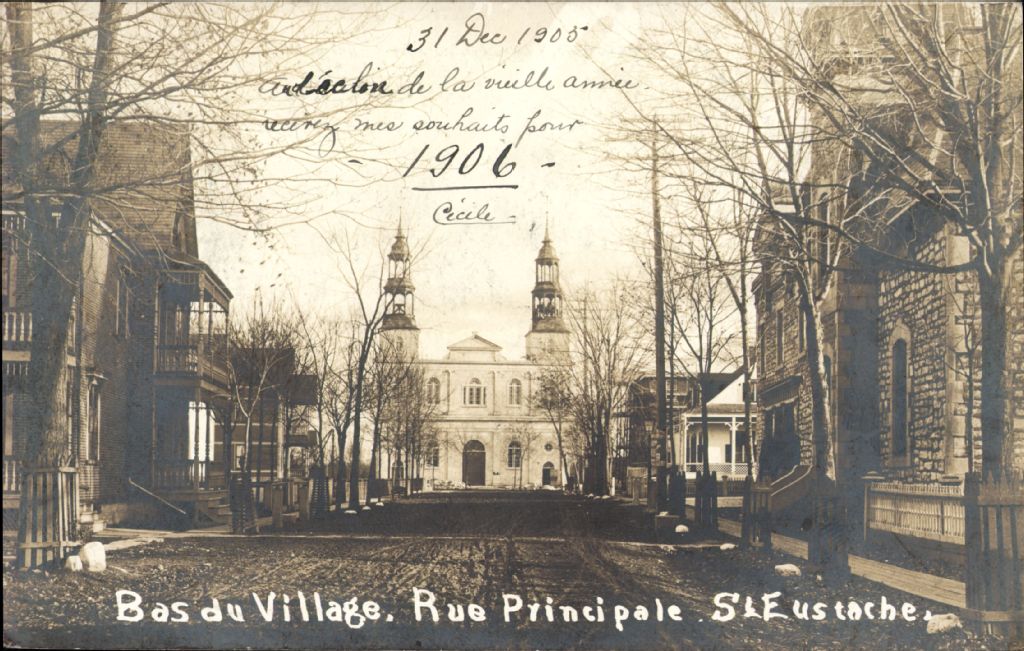 31 Dec 1905
au déclin de la vieille année.
recevez mes souhaits pour
- 1906 -
Cécile
Bas du Village. Rue Principale. St Eustache.